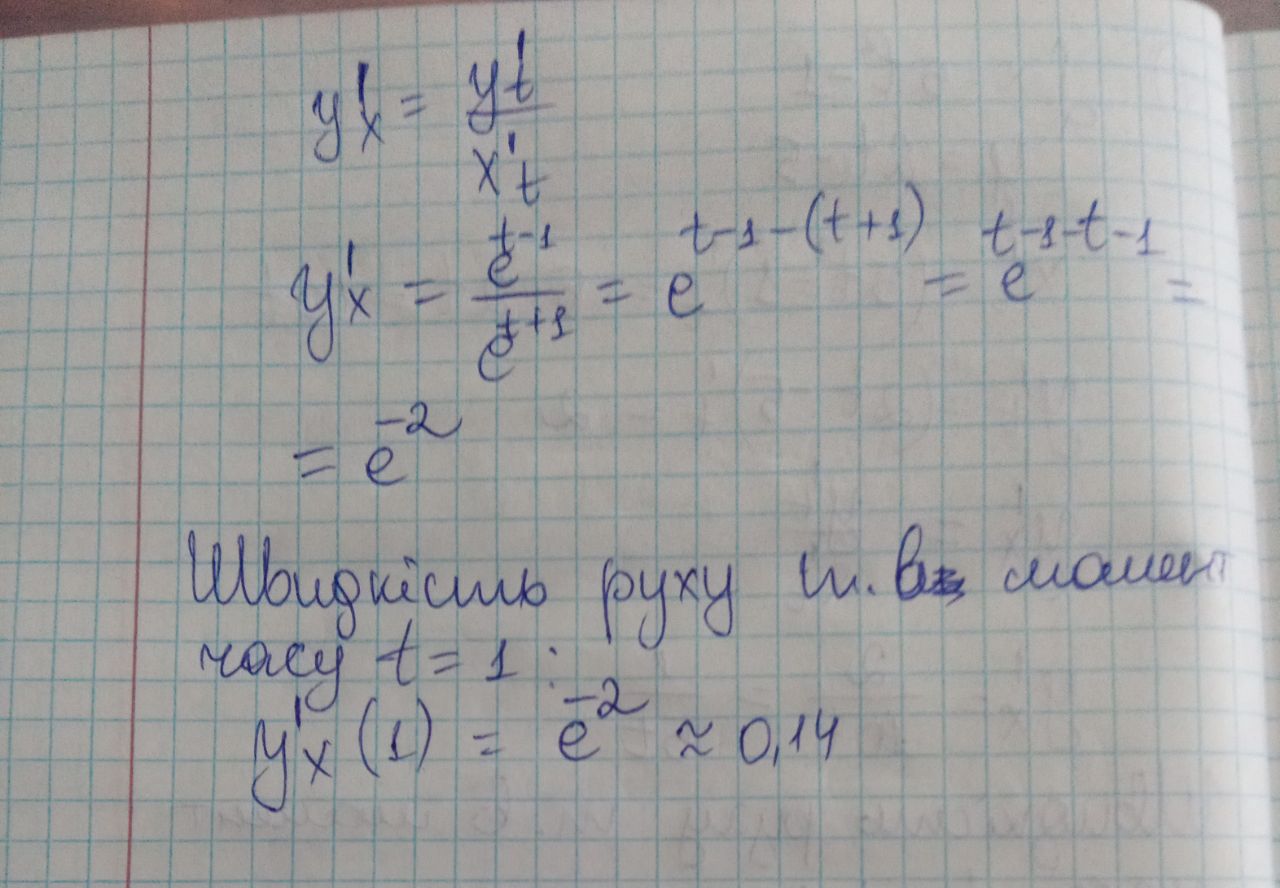 y'x = y't / x't
y'x = e^(t-1) / e^(t+1) = e^(t-1-(t+1)) = e^(t-1-t-1) =
= e^(-2)
Швидкість руху т. в момент
часу t = 1 :
y'x (1) = e^(-2) ≈ 0,14